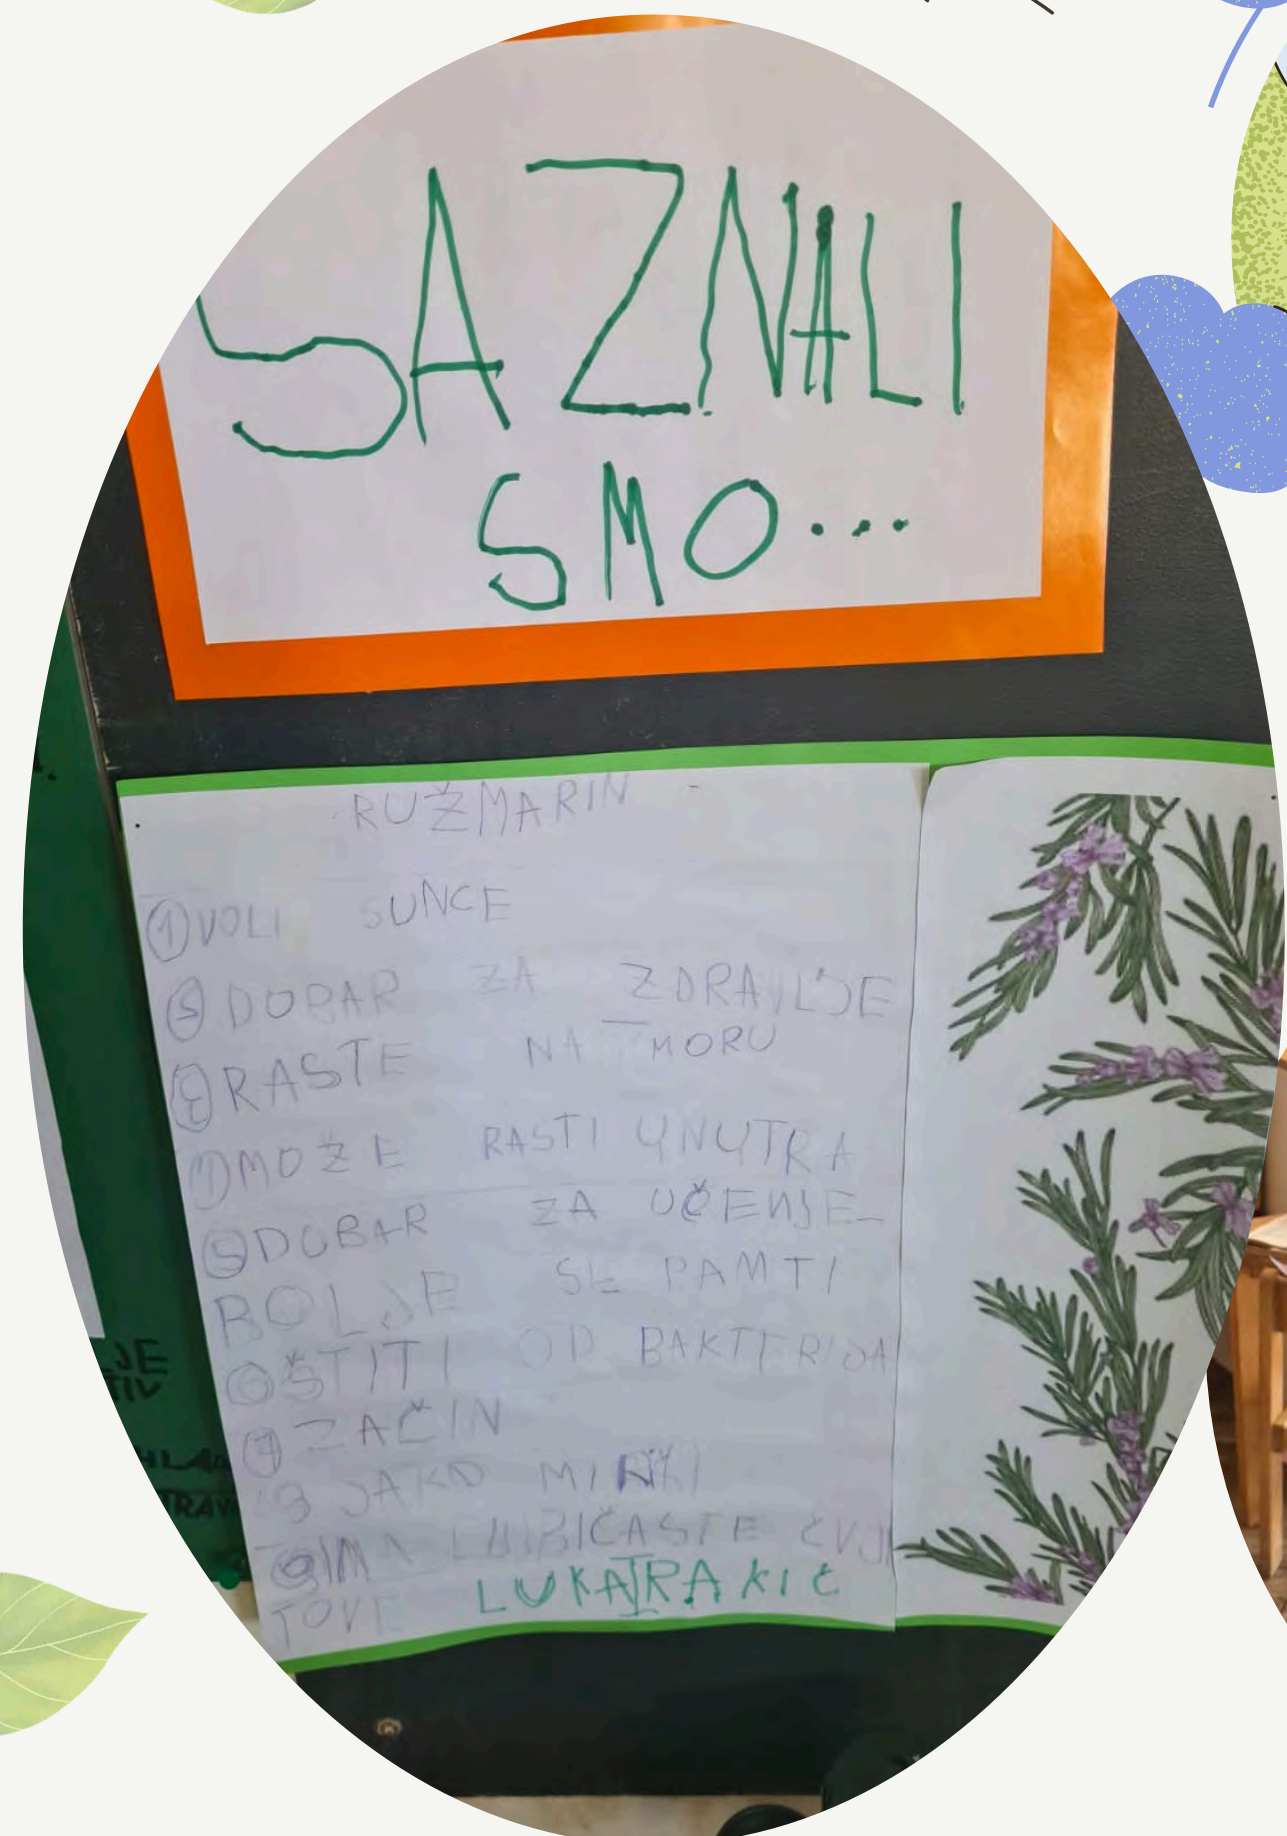 SAZNALI
SMO...
RUŽMARIN
① VOLI SUNCE
DOBAR ZA ZDRAVLJE
RASTE NA MORU
MOŽE RASTI UNUTRA
⑤ DOBAR ZA UČENJE-
BOLJE SE PAMTI
ŠTITI OD BAKTERIJA
⑦ ZAČIN
8 JAKO MIRIŠI
⑨ IMA LJUBIČASTE CVJE
TOVE LUKA TRAKIĆ
JE
TIV